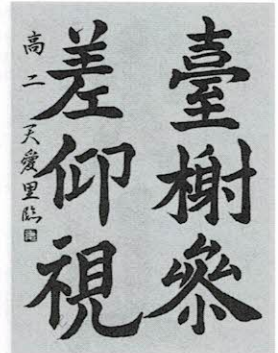 臺榭參
差仰視
高二 天愛里臨